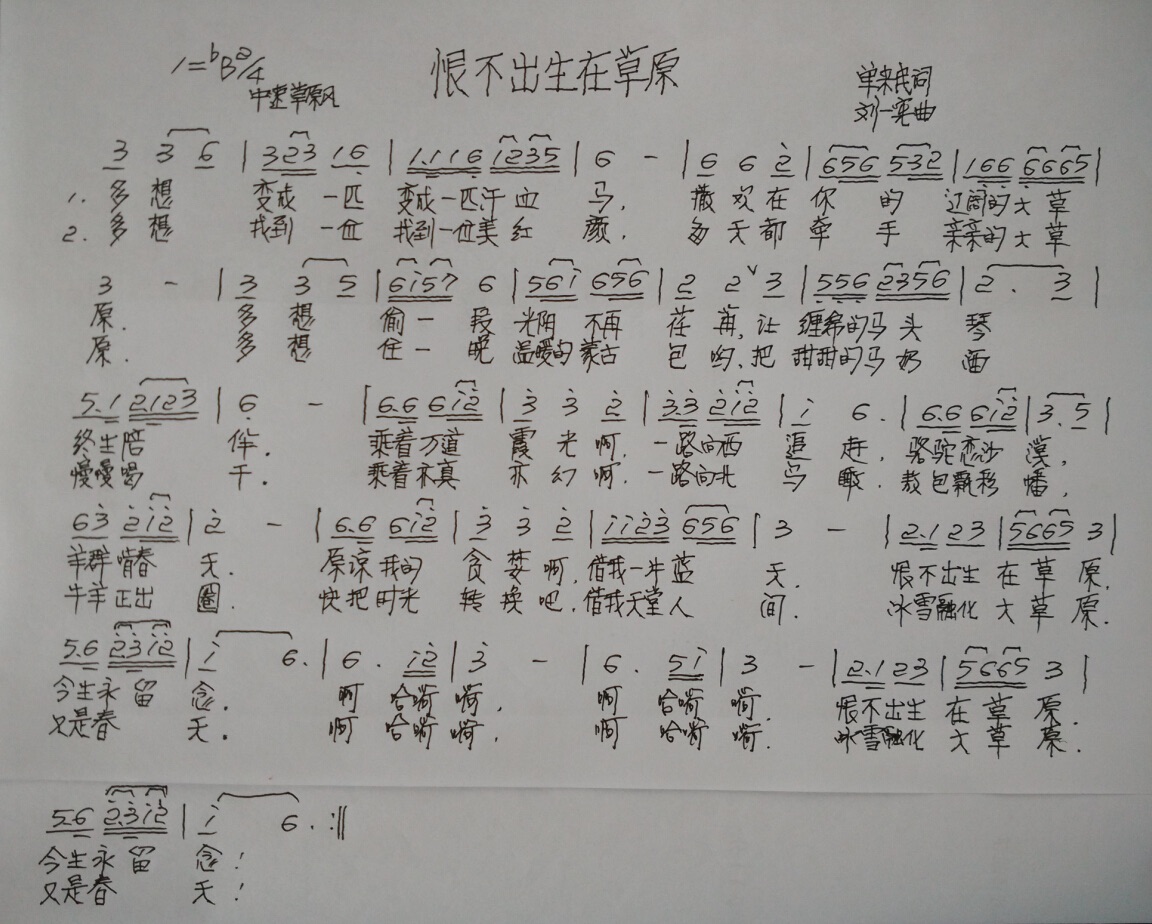 恨不出生在草原
1=ᵇB2/4
中速草原风
单来民词
刘一宪曲
3 3 6 | 323 16 | 1.116 1235 | 6 - | 6 6 2̇ | 656 532 | 166 6665 |
1. 多想 变成一匹 变成一匹汗血 马, 撒欢在你的 辽阔的大草
2. 多想 找到一位 找到一位美红 颜, 每天都牵手 亲亲的大草
3 - | 3 3 5 | 6i57 6 | 56i 656 | 2 2ˇ3 | 556 2356 | 2. 3 |
原. 多想 偷一段 光阴不再 荏苒,让 缠绵的马头 琴
原. 多想 住一晚 温暖的蒙古 包哟,把 甜甜的马奶 酒
5.1 2123 | 6̣ - | 6.6 6i2̇ | 3̇ 3̇ 2̇ | 3̇.3̇ 2̇i2̇ | i 6. | 6.6 6i2̇ | 3.5 |
终生陪 伴. 乘着万道 霞光啊,一路向西 追赶,骆驼恋沙 漠,
慢慢喝 干. 乘着亦真 亦幻啊,一路向北 鸟瞰.敖包飘彩 幡,
63̇ 2̇i2̇ | 2̇ - | 6.6 6i2̇ | 3̇ 3̇ 2̇ | ii2̇3̇ 656 | 3 - | 2.1 23 | 5665 3 |
羊群啃春 天. 原谅我的 贪婪啊,借我一半蓝 天. 恨不出生 在草原.
牛羊正出 圈. 快把时光 转换吧,借我天堂人 间. 冰雪融化 大草原.
5.6 2̇.3̇i2̇ | i 6. | 6. i2̇ | 3̇ - | 6. 5i | 3 - | 2.1 23 | 5665 3 |
今生永留 念. 啊 哈嗬 嗬, 啊 哈嗬 嗬. 恨不出生 在草原.
又是春 天. 啊 哈嗬 嗬, 啊 哈嗬 嗬. 冰雪融化 大草原.
5.6 2̇.3̇i2̇ | i 6. :||
今生永留 念!
又是春 天!